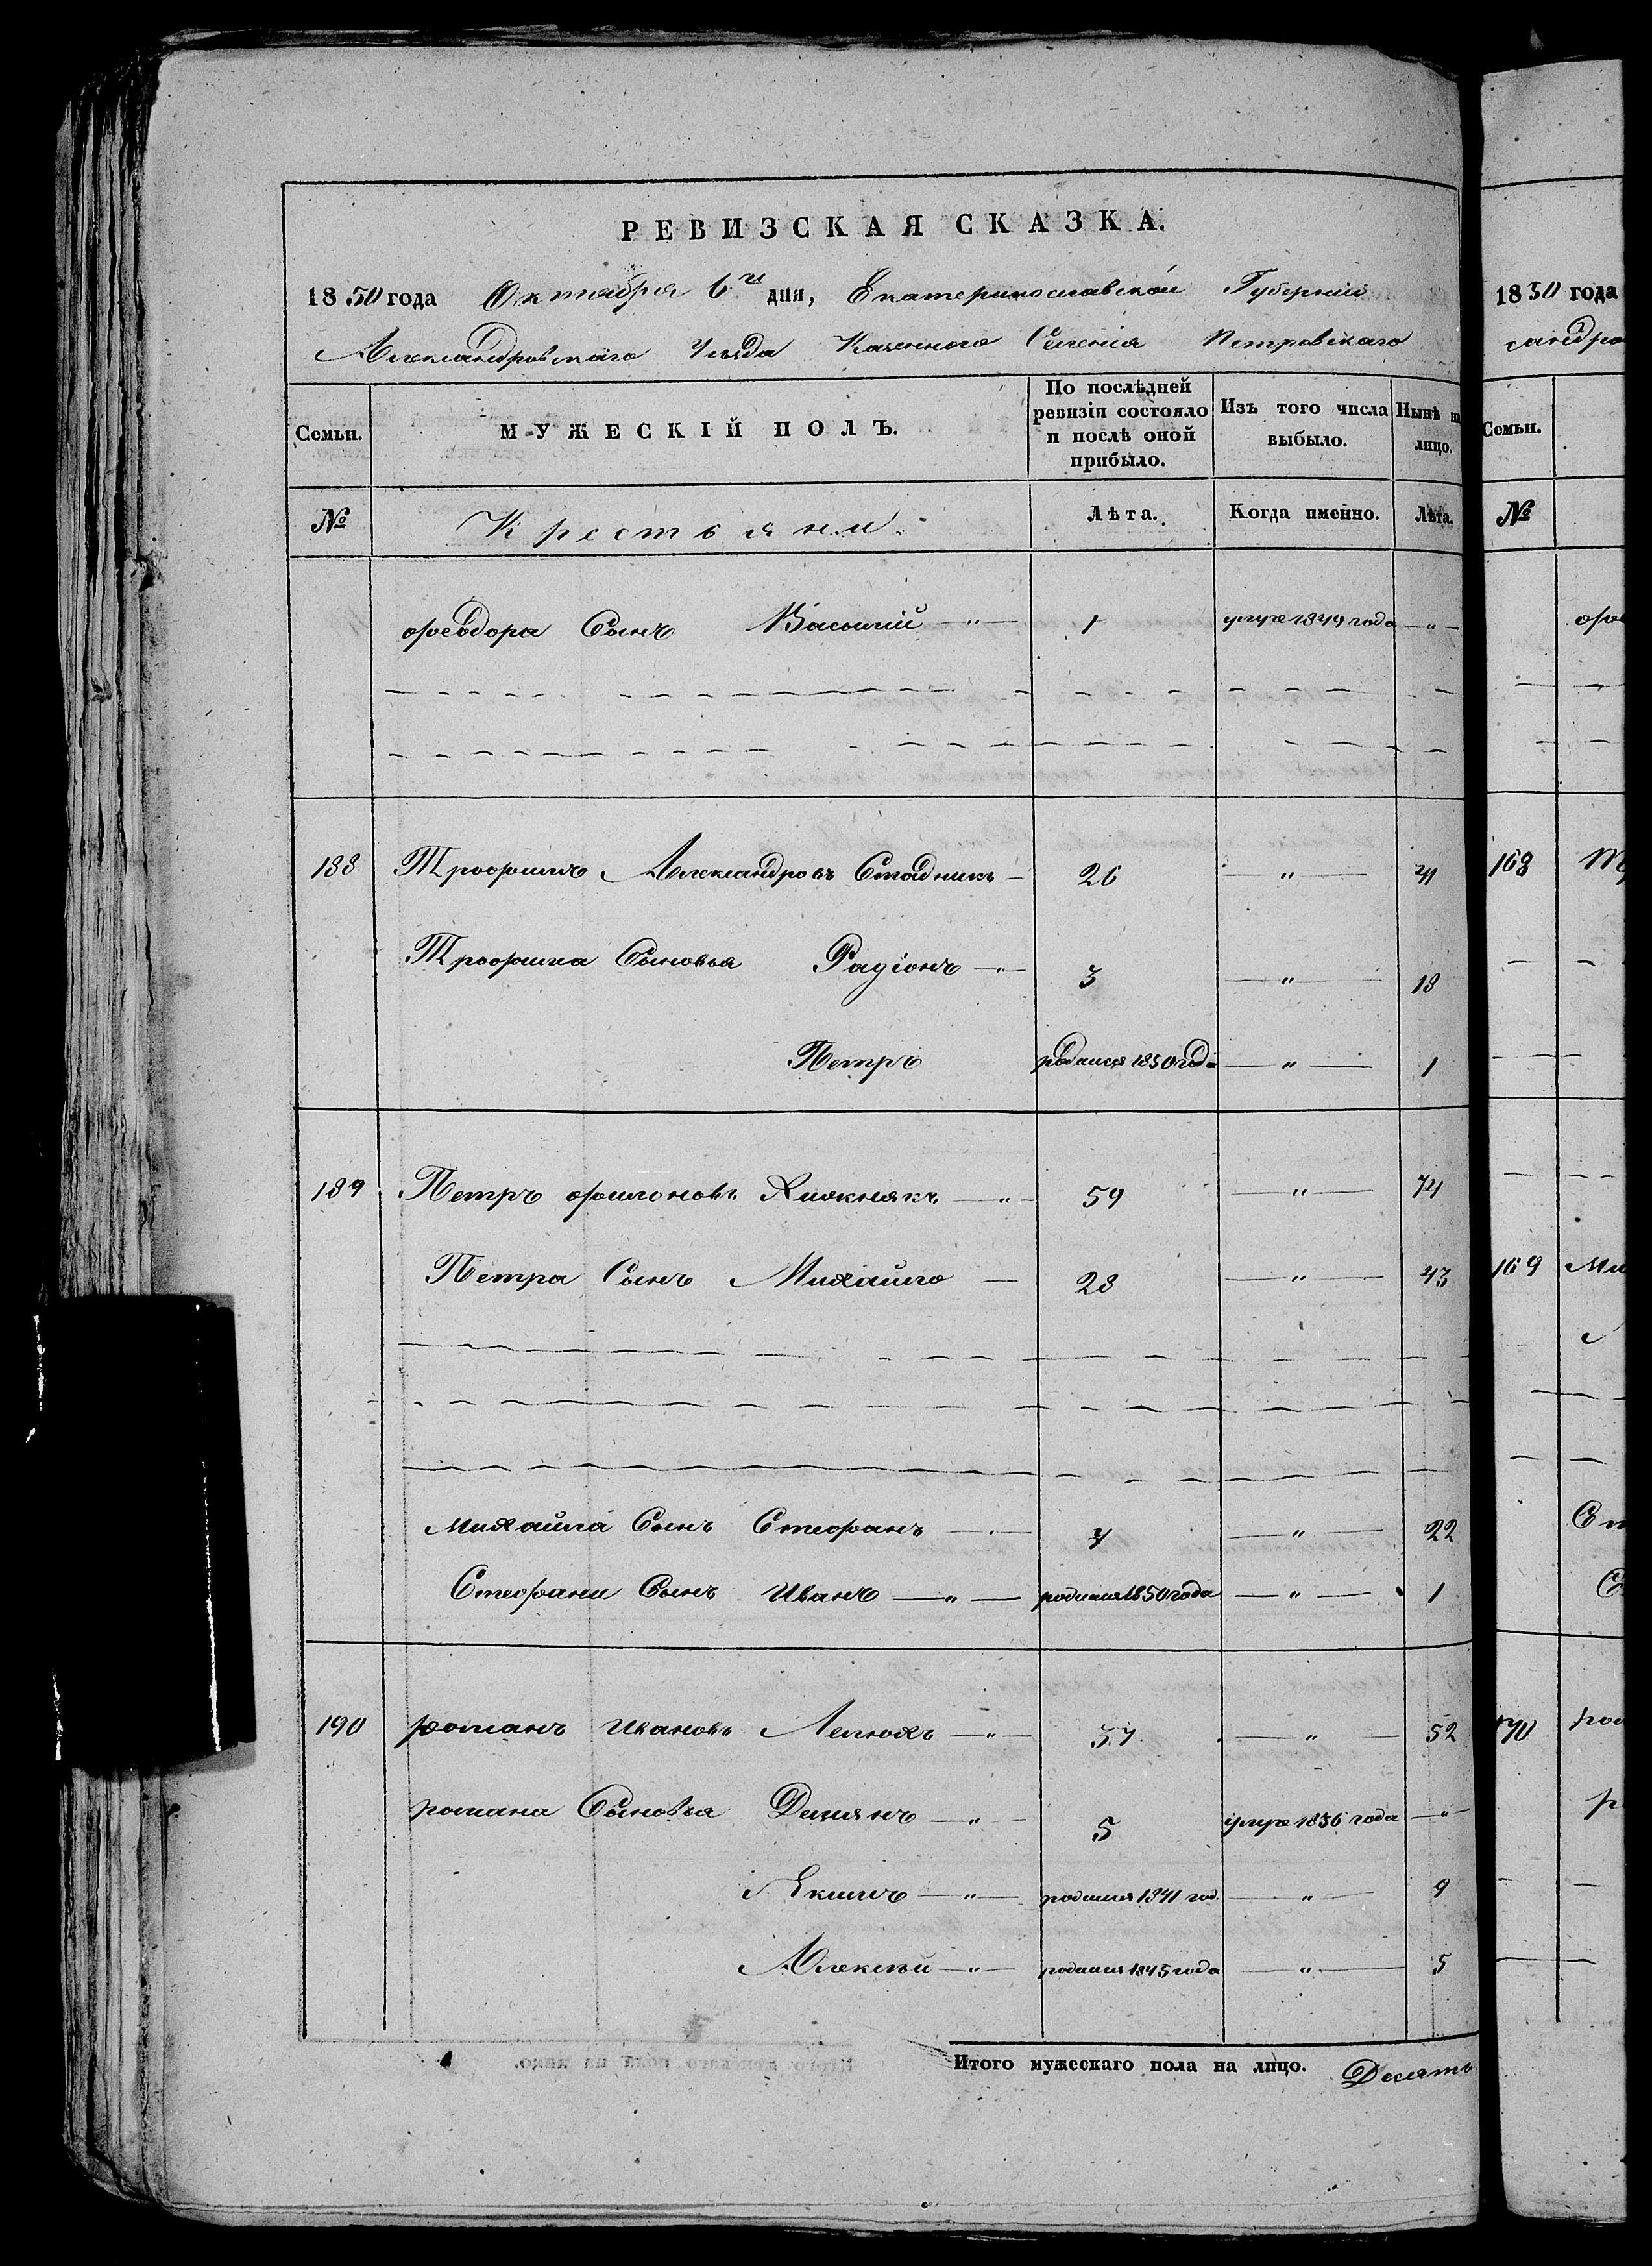 РЕВИЗСКАЯ СКАЗКА.
1850 года Октября 6го дня, Екатеринославской Губернии
Александровскаго Уѣзда Казенного Селенія Петровскаго
Семьи. МУЖЕСКІЙ ПОЛЪ. По послѣдней ревизіи состояло и послѣ оной прибыло. Изъ того числа выбыло. Нынѣ на лицо.
№ Крестьяни. Лѣта. Когда именно. Лѣта.
Феодора Сынъ Василий — " — 1 умре 1849 года — " —
188 Трофимъ Александровъ Стадникъ — 26 — " — 41
Трофима Сыновья Радіонъ — " — 3 — " — 18
Петръ родился 1850 года — " — 1
189 Петръ Филоновъ Хижнякъ — " — 59 — " — 74
Петра Сынъ Михайло — 28 — " — 43
Михайла Сынъ Стефанъ — " — 7 — " — 22
Стефана Сынъ Иванъ — " — родился 1850 года — " — 1
190 Романъ Ивановъ Лелюхъ — " — 37 — " — 52
Романа Сыновья Демянъ — " — 5 умре 1836 года — " —
Екимъ — " — родился 1841 год — " — 9
Алексѣй — " — родился 1845 года — " — 5
Итого мужескаго пола на лицо. Десять
1850 года
Семьи.
№
168
169
170